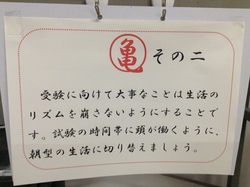 亀 その二
受験に向けて大事なことは生活の
リズムを崩さないようにすることで
す。試験の時間帯に頭が働くように、
朝型の生活に切り替えましょう。